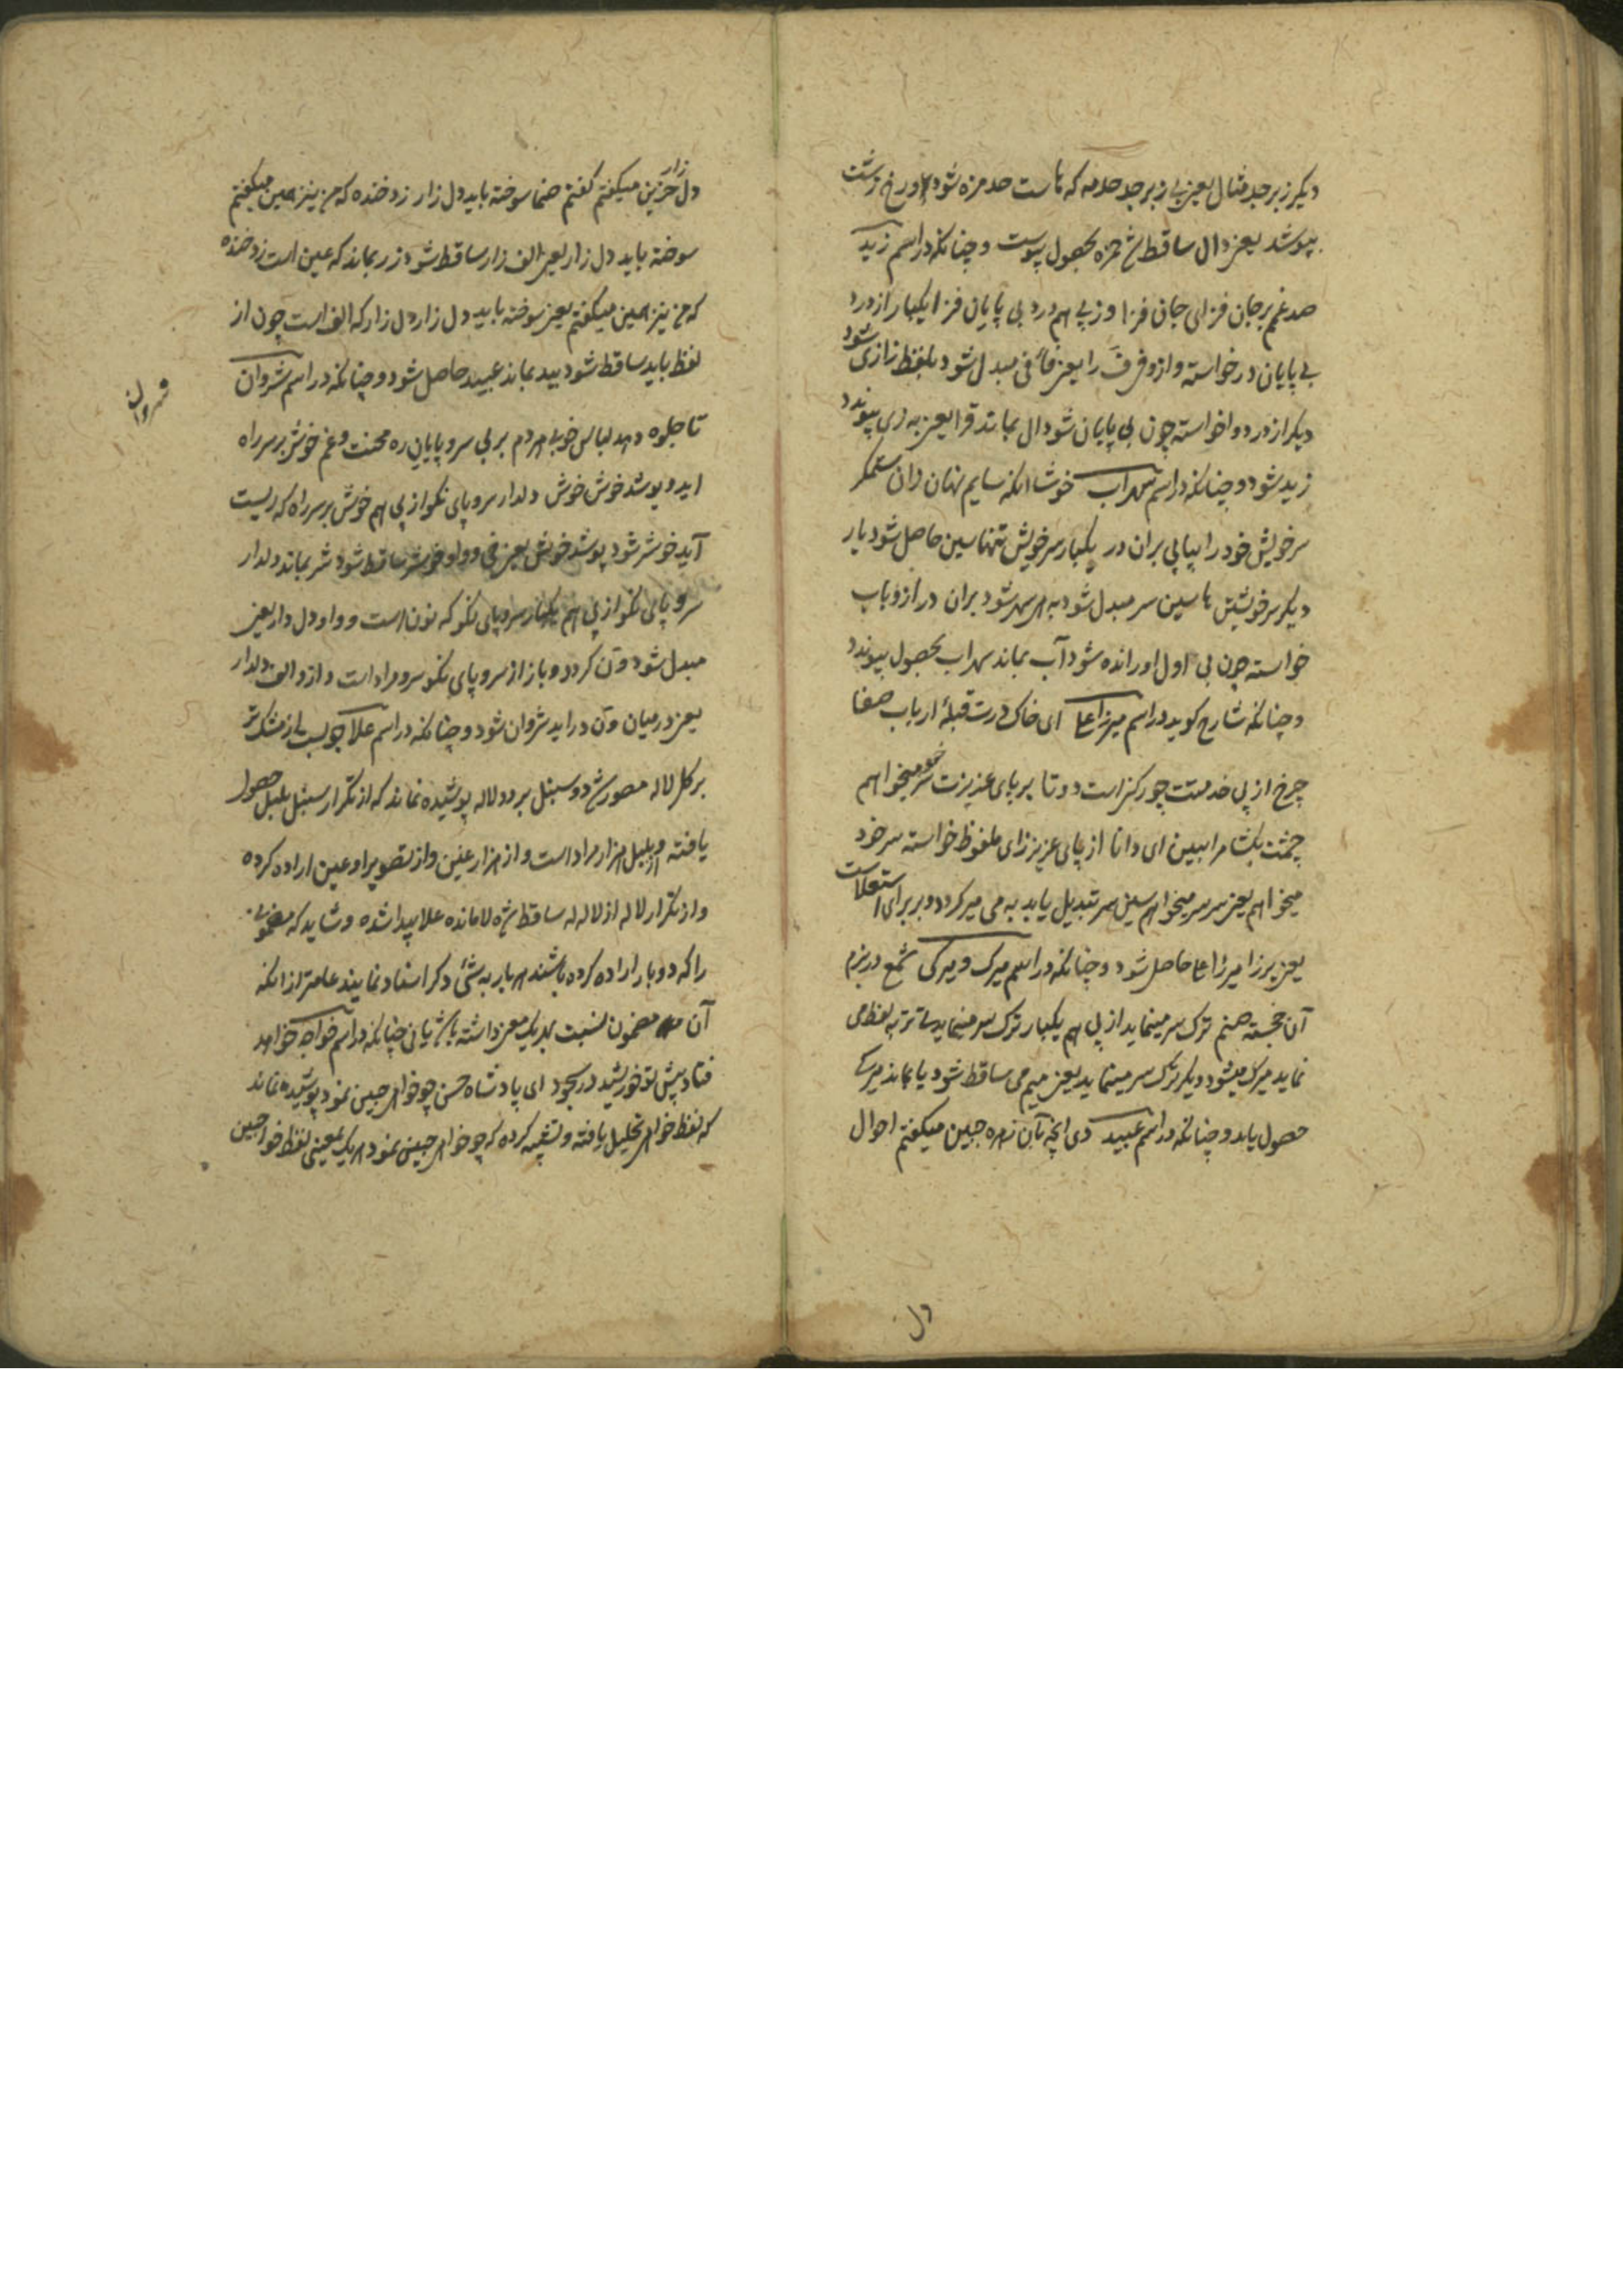 دیکر زبرجد مثال یعنی بی زبرجد حدمه که ها ست حد مزه شود اورخ زشت
بپوشد یعنی دال ساقط شد حمزه بحصول پیوست و چنانکه در اسم زید
صد غم بر جان فزای جان فزا وز پی هم درد بی پایان فزا یکبار از درد
بی پایان درخواسته و ازو فرف را یعنی فا فی مبدل شود بلفظ زا زی شود
دیکر از درد و اخواسته چون بی پایان شود دال بماند قرا یعنی به زی پیوندد
زید شود و چنانکه در اسم سهراب خوشا انکه سایم نهان زان ستمکر
سر خویش خود را بپا پی بران در یکبار سر خویش تنها سین حاصل شود بار
دیکر سر خویشش ها سین سر مبدل شود به هر سهر شود بران در ازو باب
خواسته چون بی اول اورانده شود آب بماند سهراب بحصول پیوندد
و چنانکه شارح کوید در اسم میرزا علی ای خاک درت قبلهٔ ارباب صفا
چرخ از پی خدمتت چو رکز است دوتا بر پای عزیزت سر خود میخواهم
چشمت بکشا مرا ببین ای دانا از پای عزیز زای ملفوظ خواسته سر خود
میخواهم یعنی سر سر میخواهم سین سر تبدیل یابد به می میر کردد و بر برای استعلاست
یعنی بر زا میرزا علی حاصل شود و چنانکه در اسم میرک و میرکی شمع در بزم
آن خجسته صنم ترک سر مینماید از پی هم یکبار ترک سر مینماید ساتر به لفظ می
نماید میرک میشود دیکر ترک سر مینماید یعنی میم می ساقط شود یا بماند میرکی
حصول یابد و چنانکه در اسم عبید دی انچه بآن زهره جبین میکفتم احوال
دل
دل زار حزین میکفتم کفتم صنما سوخته باید دل زار زد خنده که من نیز همین میکفتم
سوخته باید دل زار یعنی الف زار ساقط شود زر بماند که عین است زد خنده
که من نیز همین میکفتم یعنی سوخته باید دل زار دل زار که الف است چون از
لفظ باید ساقط شود بید بماند عبید حاصل شود و چنانکه در اسم شروان
شروان
تا جلوه دهد لباس خوبی هر دم بر بی سر و پایان ره محنت و غم خوش بر سر راه
اید و پوشد خوش خوش دلدار سر و پای نکو از پی هم خوش بر سر راه که ریست
آید خوشر شود پوشد خوش یعنی خی و واو خوشر ساقط شود شر بماند دلدار
سر و پای نکو از پی هم یکبار سر و پای نکو که نون است و واو دل دار یعنی
مبدل شود وآن کردد و باز از سر و پای نکو سر و مراد است و ازو الف دلدار
یعنی در میان وآن دراید شروان شود و چنانکه در اسم علا
بر کل لاله مصور شد دو سنبل بر دو لاله پوشیده نماند که از تکرار سنبل بلبل حصول
یافته و از بلبل هزار مراد است و از هزار عین و از تصویر او عین اراده کرده
و از تکرار لاله از لاله له ساقط شده لا مانده علا پیدا شده و شاید که مضمونی
را که دو بار اراده کرده باشند هر بار به شئی دکر اسناد نمایند عامتر از انکه
آن مضمون نسبت بهر یک معنی داشته باشد یا نی چنانکه در اسم خواجه خواهد
فتاد پیش تو خورشید در سجود ای پادشاه حسن چو خواهی جبین نمود پوشیده نماند
که لفظ خواهی تحلیل یافته و تشبیه کرده که چو خواهی جبین نمود هر یک یعنی لفظ خوا جبین